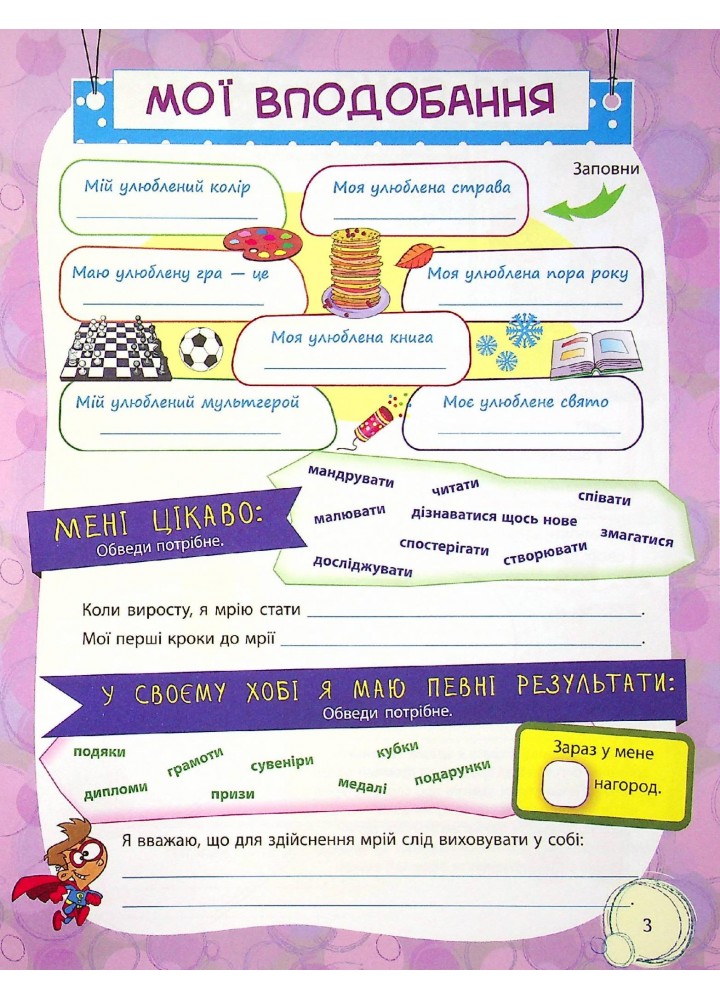 МОЇ ВПОДОБАННЯ
Заповни
Мій улюблений колір
Моя улюблена страва
Маю улюблену гра — це
Моя улюблена пора року
Моя улюблена книга
Мій улюблений мультгерой
Моє улюблене свято
МЕНІ ЦІКАВО:
Обведи потрібне.
мандрувати
читати
співати
малювати
дізнаватися щось нове
змагатися
спостерігати
створювати
досліджувати
Коли виросту, я мрію стати .
Мої перші кроки до мрії .
У СВОЄМУ ХОБІ Я МАЮ ПЕВНІ РЕЗУЛЬТАТИ:
Обведи потрібне.
подяки
грамоти
сувеніри
кубки
дипломи
призи
медалі
подарунки
Зараз у мене
нагород.
Я вважаю, що для здійснення мрій слід виховувати у собі:
.
3